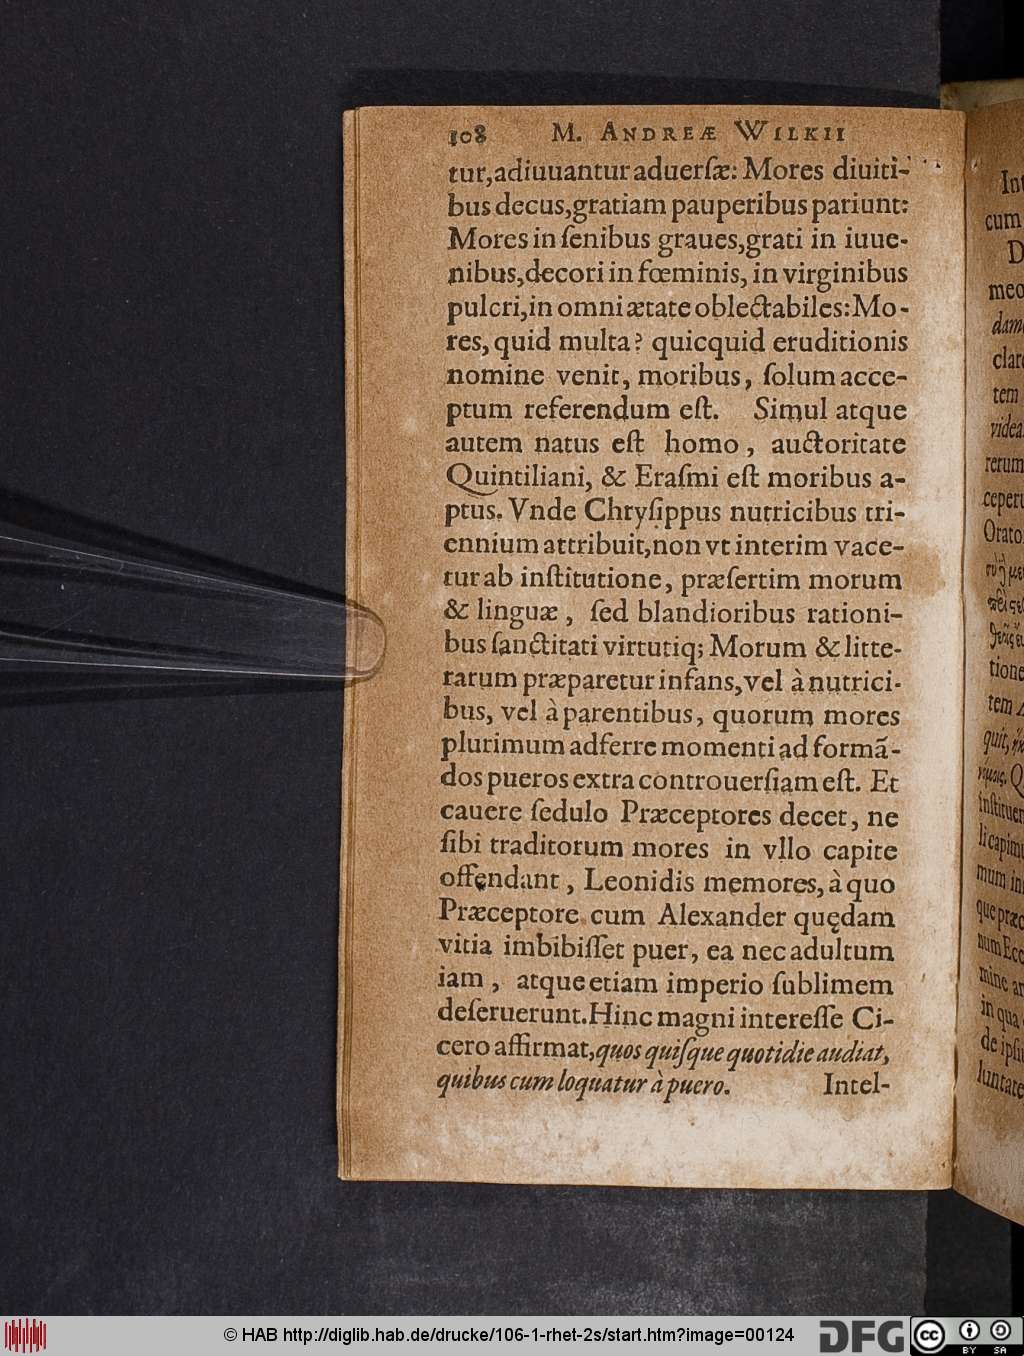 108 M. ANDREÆ WILKII
tur,adiuuantur aduerſæ: Mores diuiti-
bus decus,gratiam pauperibus pariunt:
Mores in ſenibus graues,grati in iuue-
nibus,decori in fœminis, in virginibus
pulcri,in omni ætate oblectabiles:Mo-
res, quid multa? quicquid eruditionis
nomine venit, moribus, ſolum acce-
ptum referendum eſt. Simul atque
autem natus eſt homo, auctoritate
Quintiliani, & Eraſmi eſt moribus a-
ptus. Vnde Chryſippus nutricibus tri-
ennium attribuit,non vt interim vace-
tur ab inſtitutione, præſertim morum
& linguæ, ſed blandioribus rationi-
bus ſanctitati virtutiq; Morum & litte-
rarum præparetur infans,vel à nutrici-
bus, vel à parentibus, quorum mores
plurimum adferre momenti ad formã-
dos pueros extra controuerſiam eſt. Et
cauere ſedulo Præceptores decet, ne
ſibi traditorum mores in vllo capite
offendant, Leonidis memores, à quo
Præceptore cum Alexander quędam
vitia imbibiſſet puer, ea nec adultum
iam, atque etiam imperio ſublimem
deſeruerunt.Hinc magni intereſſe Ci-
cero affirmat,quos quiſque quotidie audiat,
quibus cum loquatur à puero. Intel-
Int
cum
D
meo
dam
clar
tem
videa
rerum
ceperu
Orato
tione
tem
quit,
inſtituer
li capim
mum in
que præc
num Ecc
mine ar
in qua
de ipſi
luntate
© HAB http://diglib.hab.de/drucke/106-1-rhet-2s/start.htm?image=00124
DFG
cc
BY SA